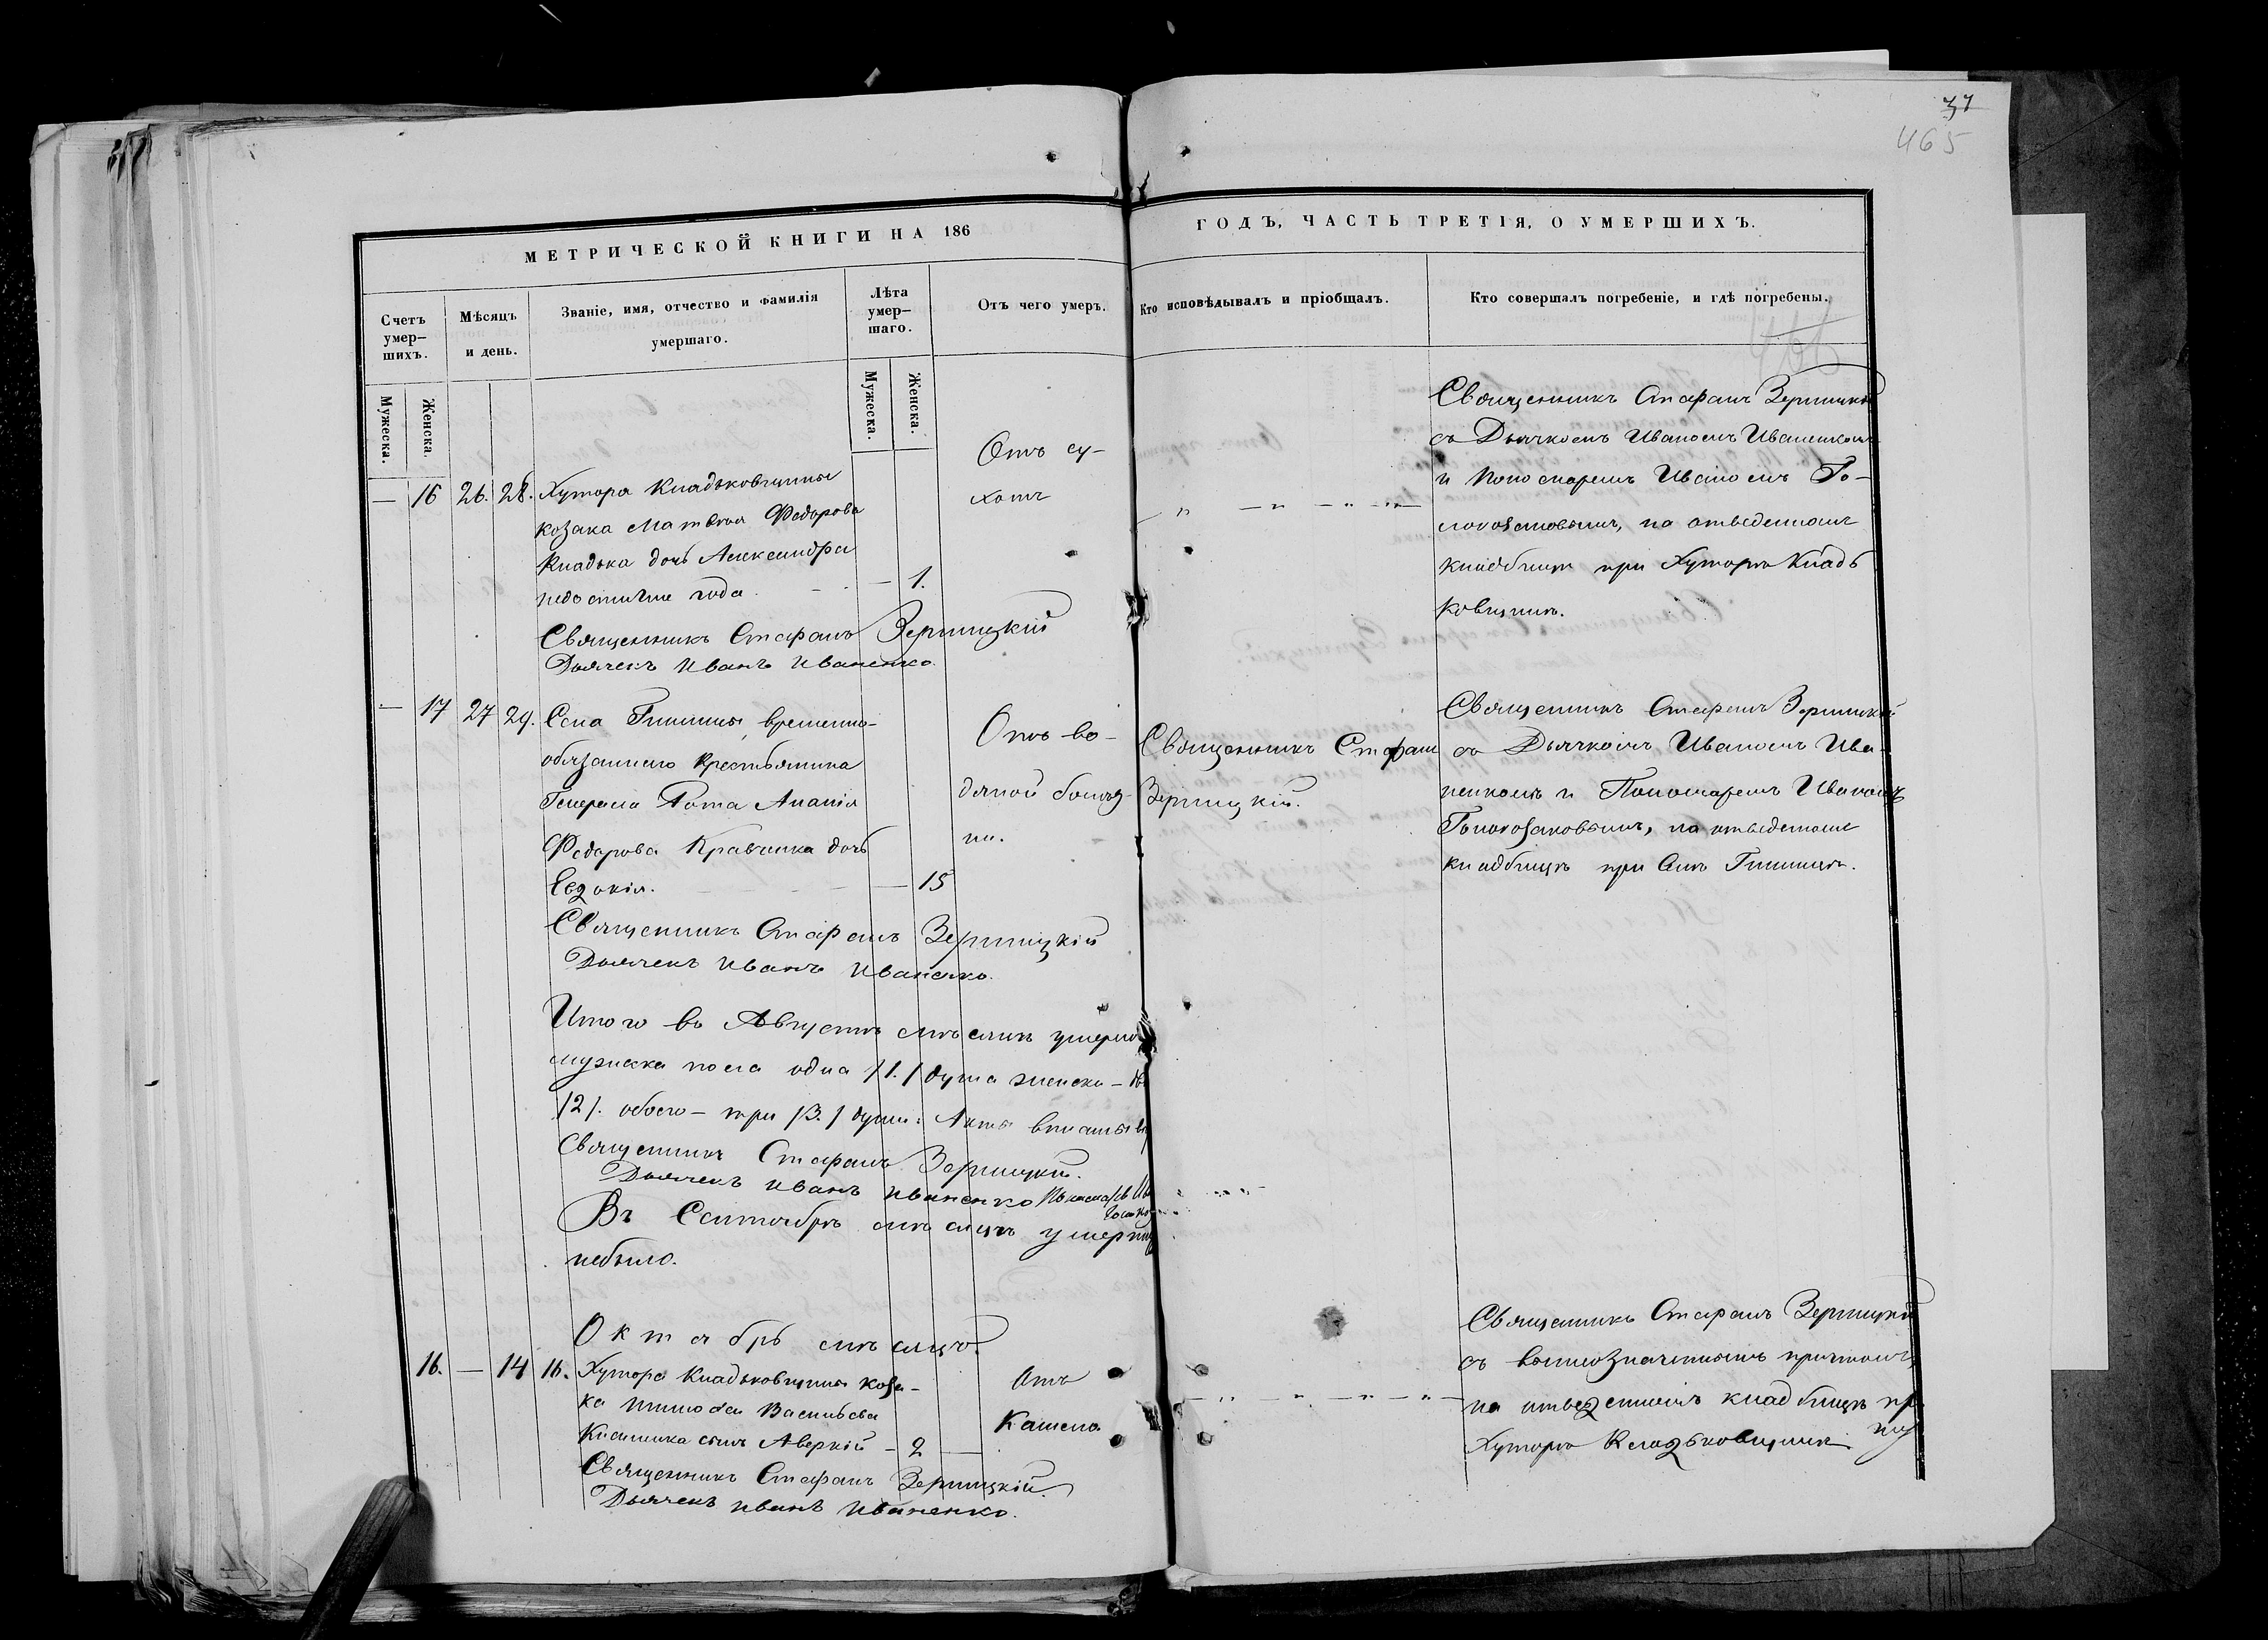 31
465
МЕТРИЧЕСКОЙ КНИГИ НА 186
ГОДЪ, ЧАСТЬ ТРЕТІЯ, О УМЕРШИХЪ.
Счетъ умер-шихъ.
Мѣсяцъ и день.
Званіе, имя, отчество и фамилія умершаго.
Лѣта умер-шаго.
Отъ чего умеръ.
Кто исповѣдывалъ и пріобщалъ.
Кто совершалъ погребеніе, и гдѣ погребены.
Мужеска.
Женска.
Мужеска.
Женска.
— 16 26. 28. Хутора Кладьковщины
козака Матвѣя Федорова
Кладька дочь Александра
недостигше года — 1.
Отъ су-
хотъ
Священникъ Стефанъ Зерницкій
съ Дьячкомъ Иваномъ Иваненкомъ
и Пономаремъ Иваномъ Го-
на отведенномъ
кладбищѣ при Хуторѣ Кладь
ковщинѣ.
Священникъ Стефанъ Зерницкій
Дьячекъ Иванъ Иваненко.
— 17 27 29. Села временно-
обязаннаго крестьянина
Генерала Рота Ананія
Федорова Кравченка дочь
Евдокія. — 15
Отъ во-
дяной болѣз-
ни.
Священникъ Стефанъ
Зерницкій.
Священникъ Стефанъ Зерницкій
съ Дьячкомъ Иваномъ Ива-
ненкомъ и Пономаремъ Иваномъ
на отведенномъ
кладбищѣ при Селѣ
Священникъ Стефанъ Зерницкій
Дьячекъ Иванъ Иваненко.
Итого въ Августѣ мѣсяцѣ умерло
мужеска пола одна /1./ душа женска —
/2/. обоего — три /3./ души. Акты
Священникъ Стефанъ Зерницкій.
Дьячекъ Иванъ Иваненко Пономарь
Въ Сентябрѣ мѣсяцѣ умерш
небыло.
Октябрь мѣсяцъ
16. — 14 16. Хутора Кладьковщины коза-
ка Тимофея Васильева
сынъ Аверкій — 2 —
Отъ
Кашеля
Священникъ Стефанъ Зерницкій
съ вышеозначеннымъ причтомъ,
на отведенномъ кладбищѣ при
Хуторѣ Кладьковщинѣ
Священникъ Стефанъ Зерницкій.
Дьячекъ Иванъ Иваненко.